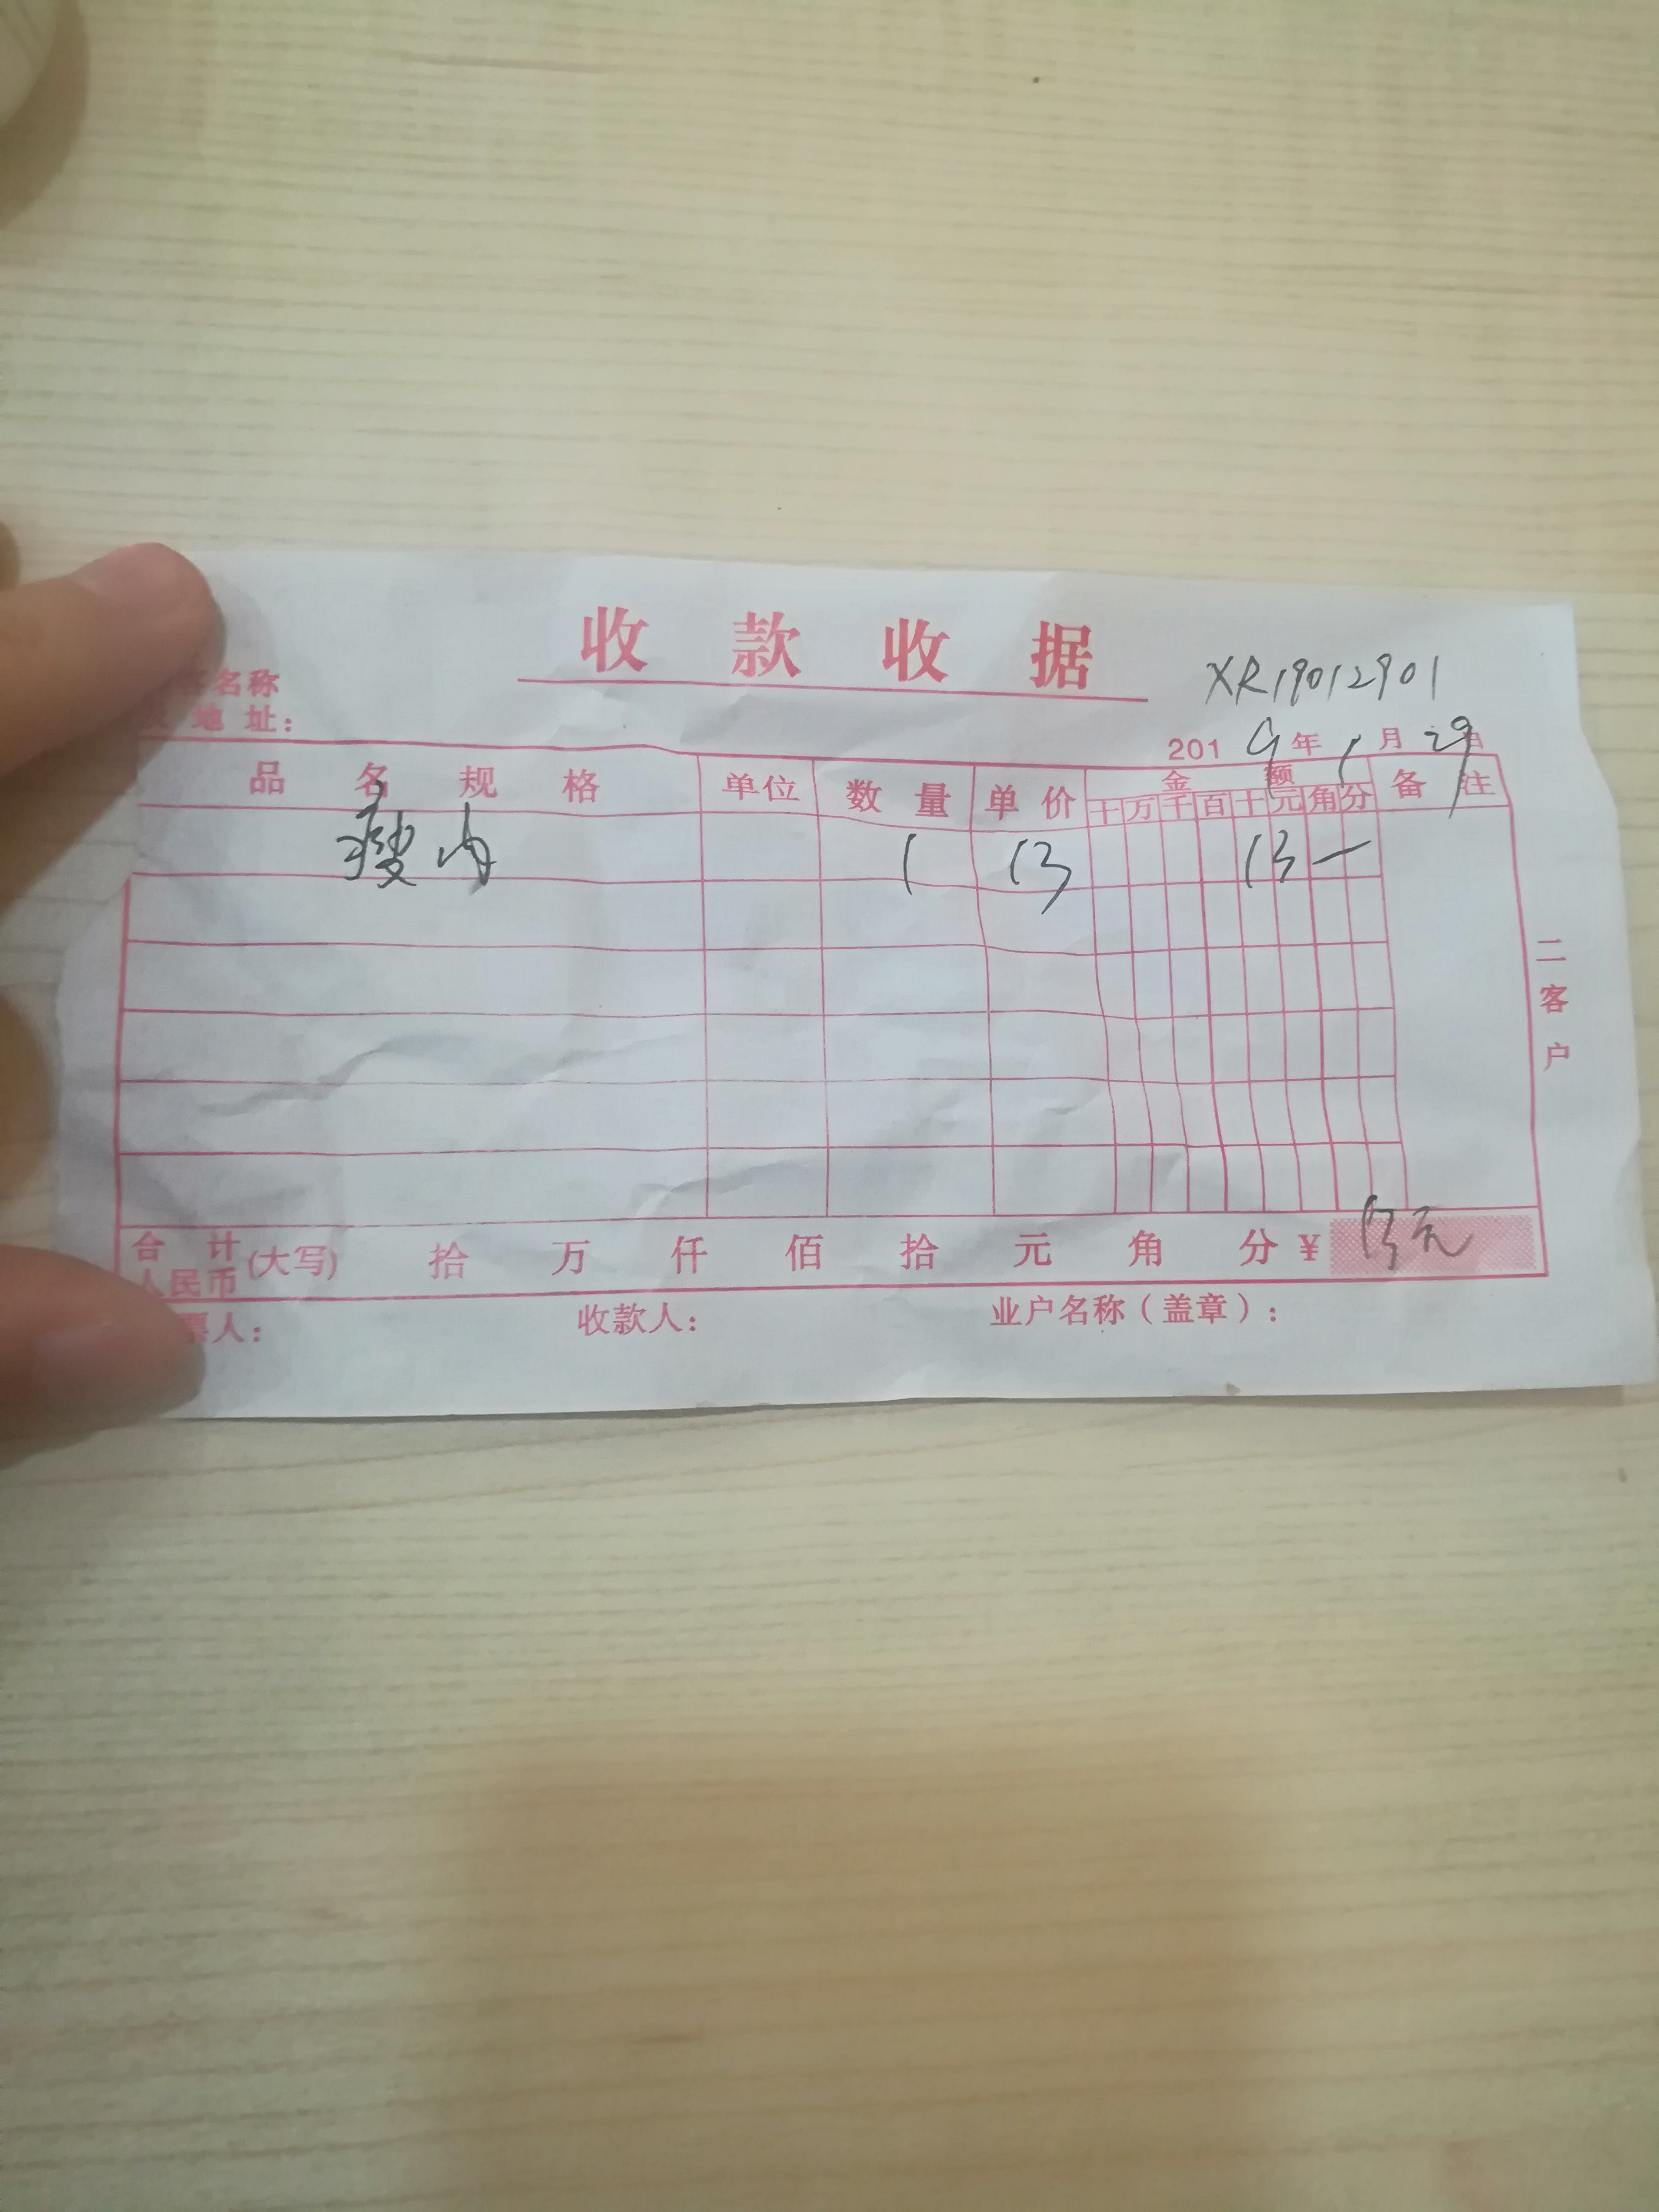 收款收据
XR19012901
名称
地址：
2019年1月29日
品名规格 单位 数量 单价 金额 备注
十万千百十元角分
瘦肉 1 13 13一
二客户
合计人民币(大写) 拾 万 仟 佰 拾 元 角 分 ¥ 13元
票人： 收款人： 业户名称（盖章）：